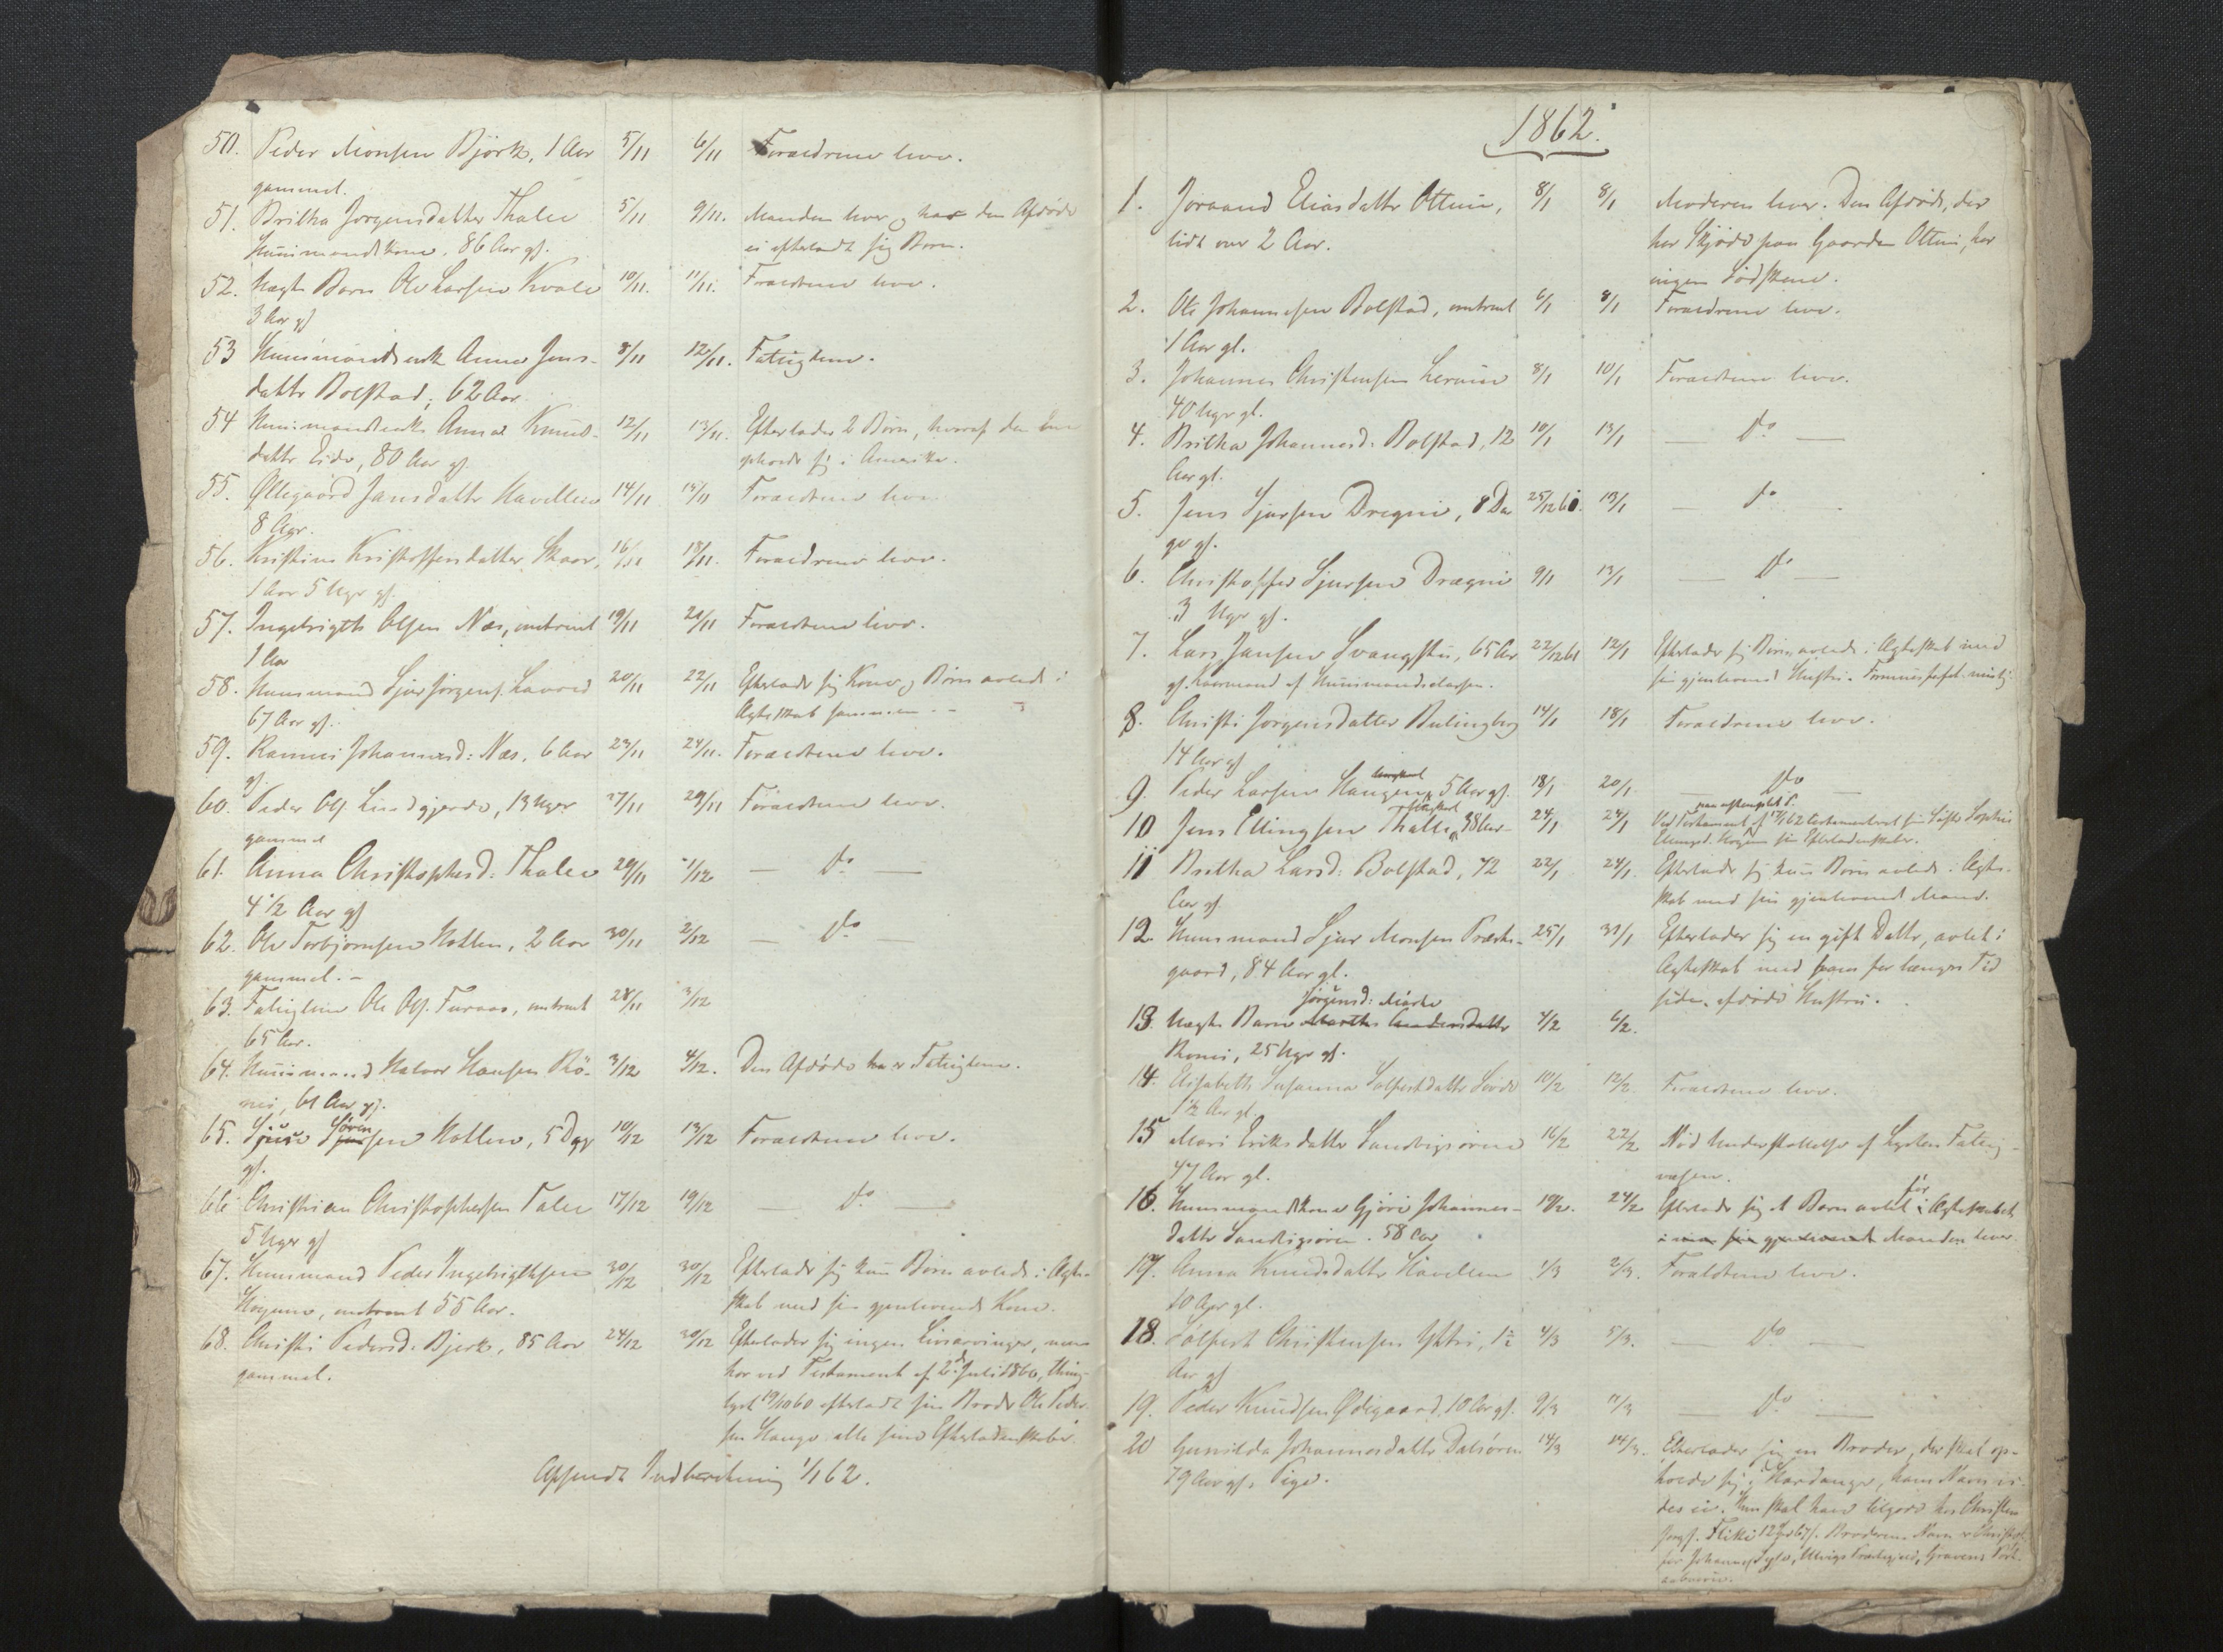 50. Peder Monsen Björk, 1 Aar 5/11 6/11 Forældrene leve.
gammel.
51. Britha Jørgensdatter Thalee 5/11 9/11. Manden lever, har den Afdöde
Huusmandskone, 86 Aar gl. ei efterladt sig Børn.
52. Uægte Barn Ole Larsen Kvale 10/11. 11/11. Forældrene leve.
3 Aar gl
53 Huusmandsenk Anna Jens- 8/11 12/11. Fattiglem.
datter Bolstad, 62 Aar.
54 Huusmandsenke Anna Knuds- 12/11 13/11. Efterlader 2 Børn, hvoraf den ene
datter Eide, 80 Aar gl. opholder sig i Amerika.
55. Øllegaard Jansdatter Havellen 14/11 15/11 Forældrene leve
8 Aar.
56. Kristine Kristoffersdatter Skaar, 16/11 18/11. Forældrene leve.
1 Aar 5 Uger gl.
57. Ingebrigth Olsen Næs, omtrent 19/11 21/11 Forældrene leve.
1 Aar
58. Huusmand Sjur Jørgens. Lavold 20/11 22/11 Efterlader sig Kone og Børn avlede i
67 Aar gl. Ægteskab sammen.
59. Rannei Johannesd: Næs, 6 Aar 23/11 24/11. Forældrene leve.
gl.
60. Peder Ols. Lindgjerde, 13 Uger 27/11 29/11 Forældrene leve.
gammel
61. Anna Christophersd: Thalee 29/11 1/12 — do —
4 1/2 Aar gl
62. Ole Torbjørnsen Mollen, 2 Aar 30/11 2/12 — do —
gammel. -
63. Fattiglem Ole Ols. Furaas, omtrent 28/11 3/12
65 Aar.
64. Huusmand Halvor Hansen Rö- 3/12 4/12. Den Afdöde har Fattiglem.
nei, 61 Aar gl.
65. Sjur Sörensen Molleen, 5 Dage 10/12 13/12 Forældrene leve.
gl.
66 Christian Christophersen Talee 17/12 19/12 — do —
5 Uger gl
67. Huusmand Peder Ingebrigthsen 30/12 30/12 Efterlader sig kun Børn avlede i Ægte-
omtrent 55 Aar. skab med sin gjenlevende Kone.
68. Christi Pedersd. Bjerke, 85 Aar 24/12 30/12 Efterlader sig ingen Livsarvinger, men
gammel. har ved Testament af 2den Juli 1860, thing-
lyst 19/10 60 efterladt sin Broder Ole Peder-
sen Hauge alle sine Efterladenskaber.
Afsendt Indberetning 1/1 62.
1862.
1. Joraand Eliasdatter Ottum, 8/1 8/1 Moderen lever. Den Afdöde, der
lidt over 2 Aar. har Skjøde paa Gaarden Ottum, har
ingen Södskene.
2. Ole Johannesen Bolstad, omtrent 6/1 8/1 Forældrene leve.
1 Aar gl.
3. Johannes Christensen Lerum 8/1 10/1 Forældrene leve.
40 Uger gl.
4. Britha Johannesd: Bolstad, 12 10/1 13/1 — do —
Aar gl.
5. Jens Sjursen Dregni, 8 Da- 25/12 61. 13/1 — do
ge gl.
6. Christoffer Sjursen Drægni 9/1 13/1 — do —
3 Uger gl.
7. Lars Jansen 65 Aar 22/12 61 12/1 Efterlader sig Børn avlede i Ægteskab med
gl. Kaarmand af Huusmandsclassen. sin gjenlevende Hustru.
8. Christi Jørgensdatter 14/1 18/1 Forældrene leve.
14 Aar gl
9. Peder Larsen Haugen, 5 Aar gl. 18/1 20/1 — do —
10 Jens Ellingsen Thalle, 38 Aar 24/1 24/1 Ved Testament af 17/1 62 testamenteret sin Søster Sophie
sin Efterladenskaber.
11 Britha Larsd: Bolstad, 72 22/1 24/1. Efterlader sig kun Børn avlede i Ægte-
Aar gl. skab med sin gjenlevende Mand.
12. Huusmand Sjur Monsen Præste- 25/1 31/1 Efterlader sig en gift Datter, avlet i
gaard, 84 Aar gl. Ægteskab med hans for længere Tid
siden afdöde Hustru.
Jørgensd: Marte
13. Uægte Barn Marthe Andersdatter 4/2 6/2.
Rönei, 25 Uger gl.
14. Elisabeth Susanna Solfestdatter 10/2 12/2. Forældrene leve.
1 1/2 Aar gl.
15 Mari Eriksdatter Sandvigsören 16/2 22/2 Nöd Understøttelse af Lysters Fattig-
47 Aar gl. væsen.
16. Huusmandskone Gjöri Johannes- 19/2. 24/2 Efterlader sig et Barn avlet før Ægteskabet
datter Sandvigsören. 58 Aar Manden lever.
17. Anna Knudsdatter Havellen 1/3 2/3. Forældrene leve.
10 Aar gl.
18. Solfest Christensen Ystri, 1 1/2 4/3 5/3. — do —
Aar gl
19. Peder Knudsen Ødegaard, 10 Aar gl. 9/3 11/3 — do —
20 Gunilda Johannesdatter Dalsören 14/3 14/3. Efterlader sig en Broder, der skal op-
79 Aar gl. Pige. holde sig i Hardanger, hans Navn vi-
des ei. Hun skal have tilgode hos Christen
Broderens Navn er Christof-
fer Johannes. Ulvigs Præstegjeld, Gravens